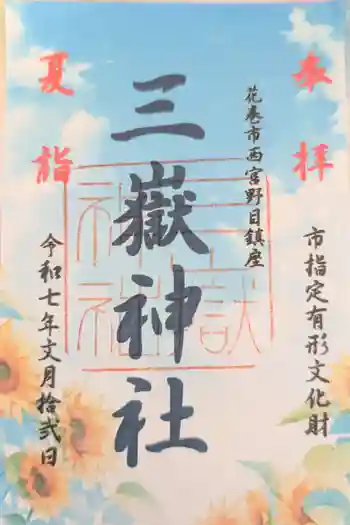 奉拝
市指定有形文化財
花巻市西宮野目鎮座
三嶽神社
夏詣
令和七年文月拾弐日